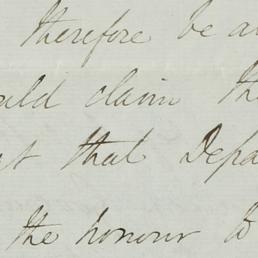 therefore be a
uld claim th
t that Depa
the honour to